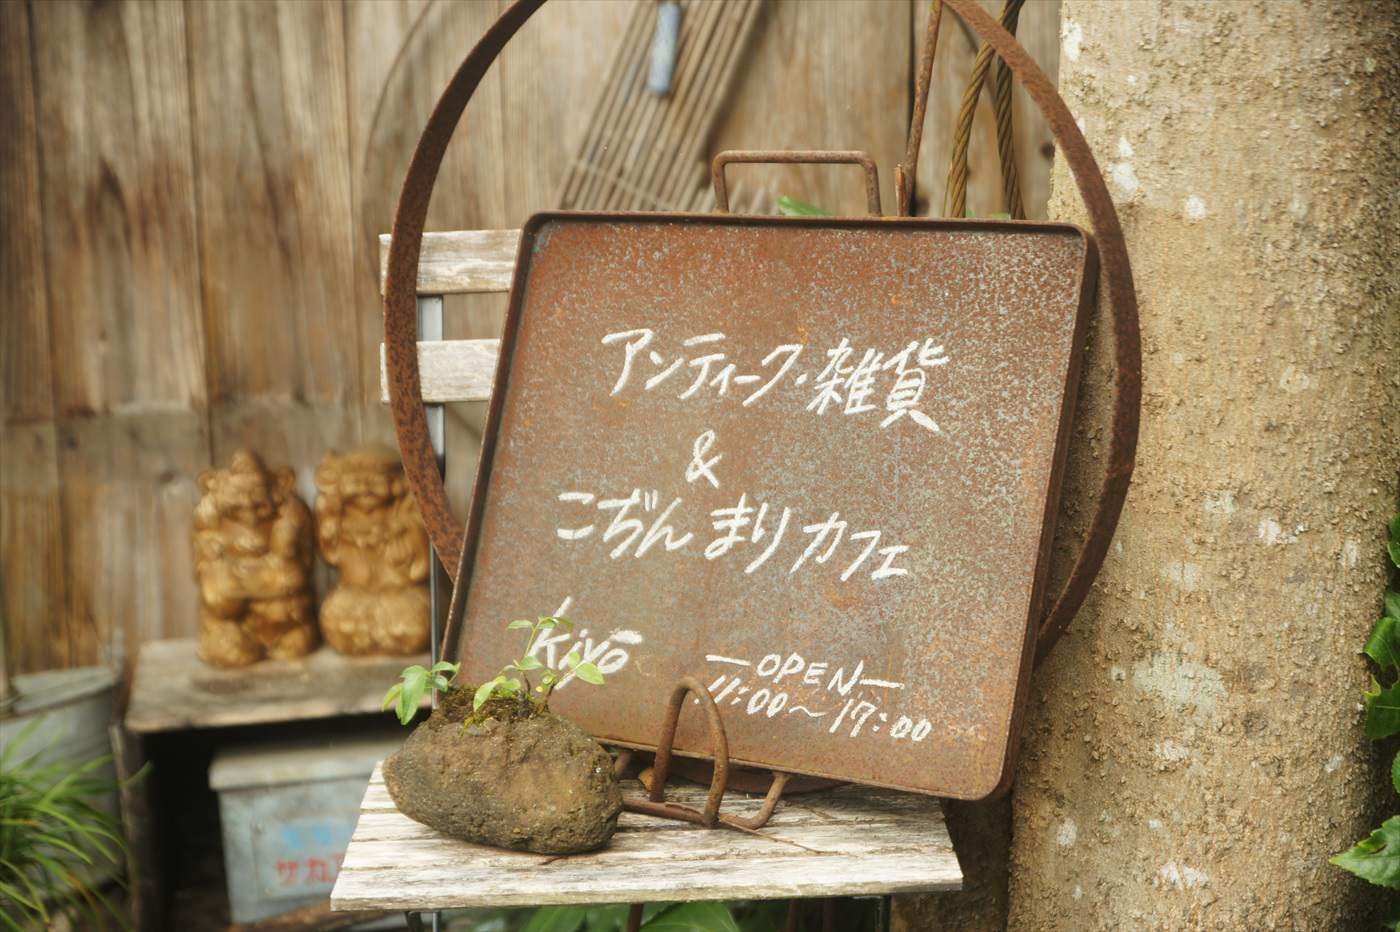 アンティーク・雑貨
&
こぢんまりカフェ
Kiyō
—OPEN—
11:00〜17:00
サカ